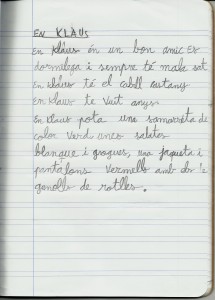 EN KLAUS
En Klaus én un bon amic Es
dormilega i sempre té mala sat
En Klaus té el cabell castany
en Klaus te vuit anys
En Klaus pota una samarreta de
color verd unes sabates
blanque i grogues, una jaqueta i
pantalons vermells amb dos
genolls de rotlles.